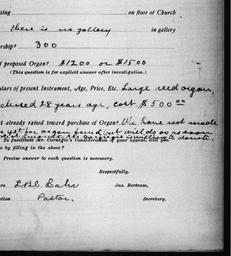 ising on floor of Church
there is no gallery in gallery
ership? 300
f proposed Organ? $1200 or $1500
(This question is for explicit answer after investigation.)
ulars of present Instrument, Age, Price, Etc. Large reed organ,
28 years ago, cost $500.00
t already raised toward purchase of Organ? We have not made
yet for organ fund but will do so as soon
To facilitate Mr. Carnegie's Consideration of your appeal, will you
e by filling in the above?
Precise answer to each question is necessary.
Respectfully,
Jas. Bertram,
ition Pastor. Secretary.